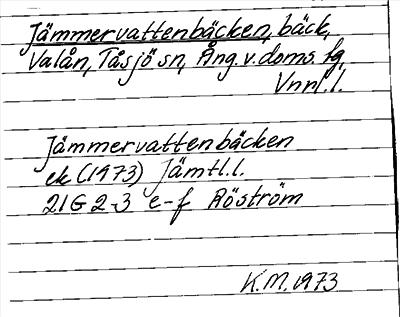 Jämmervattenbäcken, bäck,
Valån, Tåsjö sn, Ång. v. doms. fg,
Vnrl. l.
Jämmervattenbäcken
ek (1973) Jämtl. l.
21G 2-3 e-f Röström
K.M. 1973